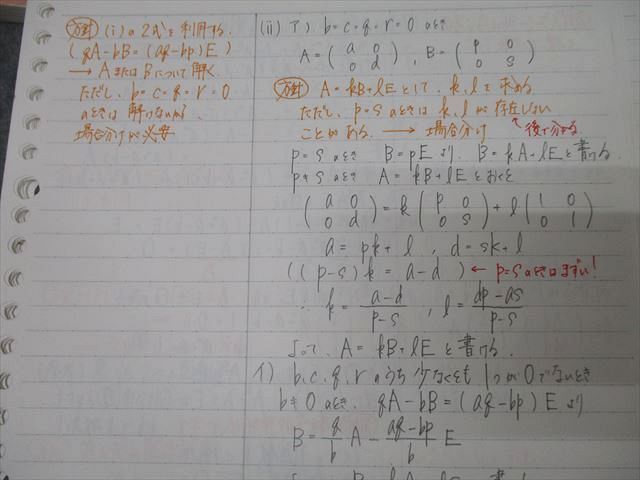 方針 (i)の2式を利用する.
(qA-bB=(aq-bp)E)
→ AまたはBについて解く.
ただし, b=c=q=r=0
のときは解けないため
場合分けが必要
(ii) ア) b=c=q=r=0 のとき
A=(a 0 0 d), B=(p 0 0 s)
方針 A=kB+lEとして, k, lを求める
ただし, p=s のときは k, l が存在しない
ことがある. → 場合分け
後で分かる
p=s のとき B=pE より, B=kA+lEと書ける.
p≠s のとき A=kB+lEとおくと
(a 0 0 d)=k(p 0 0 s)+l(1 0 0 1)
a=pk+l, d=sk+l
((p-s)k=a-d) ← p=sのときはまずい!
∴ k=a-d/p-s, l=dp-as/p-s
よって, A=kB+lE と書ける.
イ) b, c, q, r のうち少なくとも1つが0でないとき
b≠0 のとき, qA-bB=(aq-bp)E より
B=q/b A-aq-bp/b E